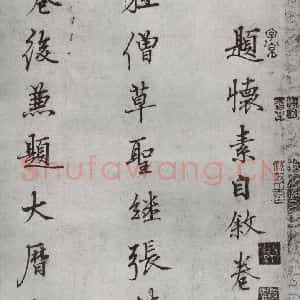 題懷素自敘卷
僧草聖繼張
後兼題大曆
Shufawang.CN